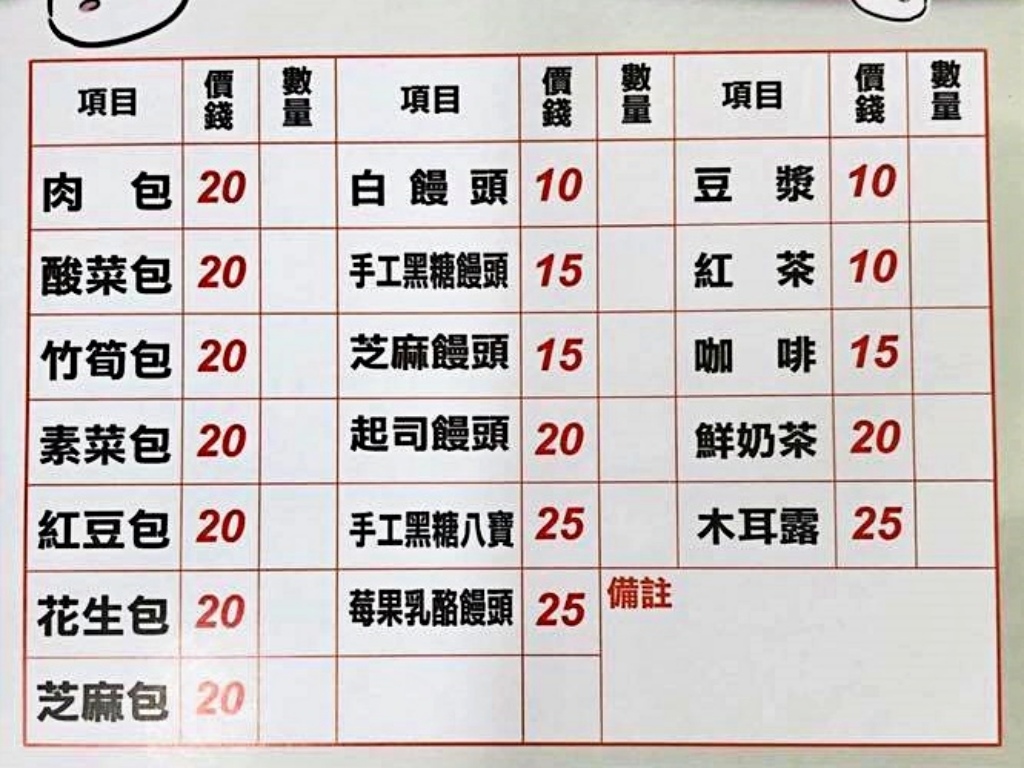 項目 價錢 數量 項目 價錢 數量 項目 價錢 數量
肉包 20 白饅頭 10 豆漿 10
酸菜包 20 手工黑糖饅頭 15 紅茶 10
竹筍包 20 芝麻饅頭 15 咖啡 15
素菜包 20 起司饅頭 20 鮮奶茶 20
紅豆包 20 手工黑糖八寶 25 木耳露 25
花生包 20 莓果乳酪饅頭 25 備註
芝麻包 20